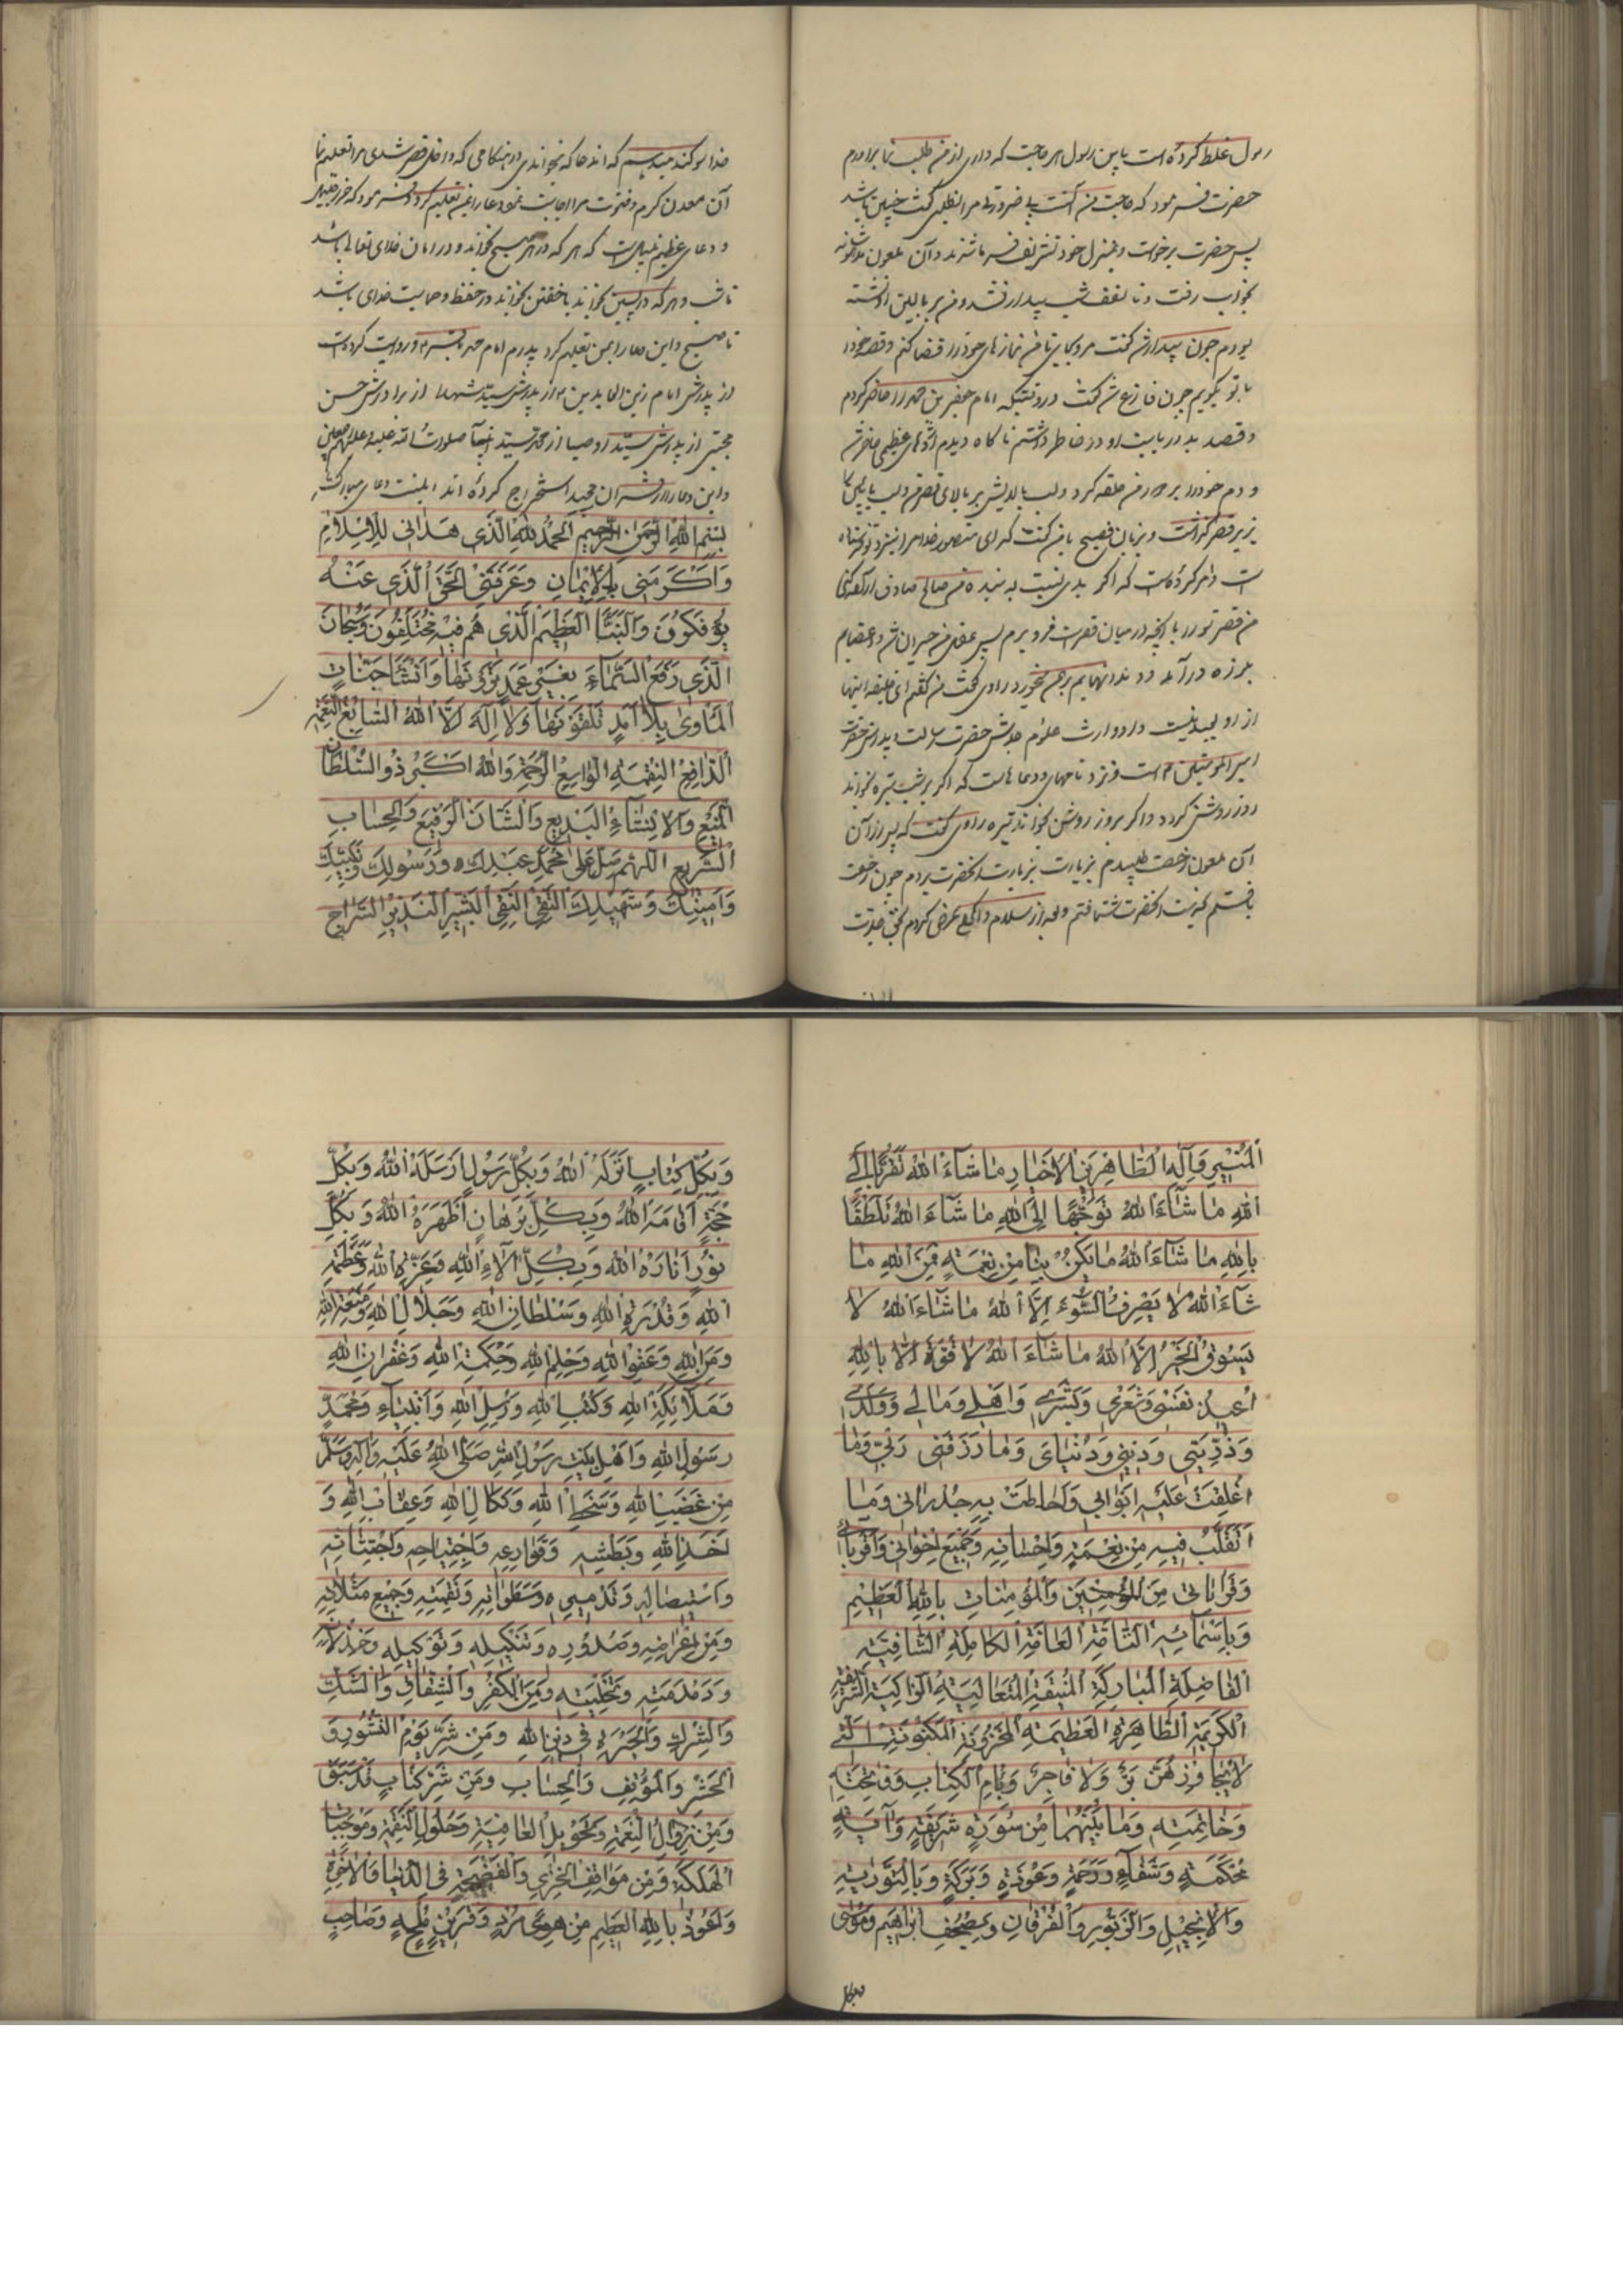 رسول غلط کرده است یا بن رسول هر حاجت که داری از من طلب نما برآورم
حضرت فرمود که حاجت من آنست بی ضرورتی مرا نطلبی گفت چنین باشد
پس حضرت برخواست و بمنزل خود تشریف فرما شدند و آن ملعون
بخواب رفت و تا نصف شب بیدار نشد و من بر بالین او نشسته
بودم چون بیدار شد گفت مرو بجایی تا من نمازهای خود را قضا کنم و قصه خود را
با تو بگویم چون فارغ شد گفت در وقتیکه امام جعفر بن محمد را حاضر کردم
و قصد بد در بابت او در خاطر داشتم ناگاه دیدم اژدهای عظیمی حاضر شد
و دم خود را بر دور من حلقه کرد و لب بالایش بر بالای قصر من و لب پایین
بزیر قصر گذاشت و بزبان فصیح با من گفت که ای منصور خدا مرا بنزد تو فرستاده
است و امر کرده است که اگر بدی نسبت به بنده من صالح صادق اراده کنی
من قصر تو را با آنچه در میان قصرست فرو برم پس عقل من حیران شد و اعضایم
بلرزه درآمد و دندانهایم برهم میخورد راوی گفت من گفتم ای خلیفه اینها
از او بعید نیست و او وارث علوم جدش حضرت رسالت و پدرش حضرت
امیر المومنین است و نزد او نامها و دعاهاست که اگر بر شب تیره بخواند
روز روشن گردد و اگر بروز روشن بخواند تیره راوی گفت که پس از آن
از آن ملعون رخصت طلبیدم بزیارت بزیارت آنحضرت بروم چون رخصت
یافتم بخدمت آنحضرت شتافتم و بعد از سلام و عرض کردم بحق جدت
خدا سوگند میدهم که آن دعا که بخواندی در هنگامی که داخل قصر شدی مرا تعلیم نما
آن معدن کرم و فتوت مرا اجابت نمود دعا را بمن تعلیم کرد و فرمود که حرز جلیل
و دعای عظیم نبیلیست که هر که در هر صبح بخواند در امان خدای تعالی باشد
تا شب و هر که در پسین بخواند یا خفتن بخواند در حفظ و حمایت خدای باشد
تا صبح و این دعا را بمن تعلیم کرد پدرم امام محمد باقر و روایت کرده است
از پدرش امام زین العابدین و از پدرش سید شهدا از برادرش حسن
مجتبی از پدرش سید اوصیا از محمد سید انبیا صلوات الله علیه و علیهم اجمعین
و این دعا را از قرآن مجید استخراج کرده اند اینست دعای مبارک
بِسْمِ اللهِ الرَّحْمٰنِ الرَّحِيمِ اَلْحَمْدُ لِلّٰهِ الَّذِي هَدَانِي لِلْاِسْلَامِ
وَاَكْرَمَنِي بِالْاِيْمَانِ وَعَرَّفَنِي الْحَقَّ الَّذِي عَنْهُ
يُؤْفَكُوْنَ وَالنَّبَاَ الْعَظِيْمَ الَّذِي هُمْ فِيْهِ مُخْتَلِفُوْنَ وَسُبْحَانَ
الَّذِي رَفَعَ السَّمَاءَ بِغَيْرِ عَمَدٍ تَرَوْنَهَا وَاَنْشَاَ جَنَّاتِ
الْمَاْوٰى بِلَا اَمَدٍ تَلْقَوْنَهَا وَلَا اِلٰهَ اِلَّا اللهُ السَّابِغُ النِّعْمَةِ
الدَّافِعُ النِّقْمَةِ الْوَاسِعُ الرَّحْمَةِ وَاللهُ اَكْبَرُ ذُو السُّلْطَانِ
الْمَنِيْعِ وَالْاِنْشَاءِ الْبَدِيْعِ وَالشَّانِ الرَّفِيْعِ وَالْحِسَابِ
السَّرِيْعِ اَللّٰهُمَّ صَلِّ عَلٰى مُحَمَّدٍ عَبْدِكَ وَرَسُوْلِكَ وَنَبِيِّكَ
وَاَمِيْنِكَ وَشَهِيْدِكَ التَّقِيِّ النَّقِيِّ الْبَشِيْرِ النَّذِيْرِ السِّرَاجِ
الْمُنِيْرِ وَآلِهِ الطَّاهِرِيْنَ الْاَخْيَارِ مَا شَاءَ اللهُ تَقَرُّبًا اِلَى
اللهِ مَا شَاءَ اللهُ تَوَجُّهًا اِلَى اللهِ مَا شَاءَ اللهُ تَلَطُّفًا
بِاللهِ مَا شَاءَ اللهُ مَا يَكُنْ بِنَا مِنْ نِعْمَةٍ فَمِنَ اللهِ مَا
شَاءَ اللهُ لَا يَصْرِفُ السُّوْءَ اِلَّا اللهُ مَا شَاءَ اللهُ لَا
يَسُوْقُ الْخَيْرَ اِلَّا اللهُ مَا شَاءَ اللهُ لَا قُوَّةَ اِلَّا بِاللهِ
اُعِيْذُ نَفْسِي وَشَعْرِي وَبَشَرِي وَاَهْلِي وَمَالِي وَوَلَدِي
وَذُرِّيَّتِي وَدِيْنِي وَدُنْيَايَ وَمَا رَزَقَنِي رَبِّي وَمَا
اُغْلِقَتْ عَلَيْهِ اَبْوَابِي وَاَحَاطَتْ بِهِ جُدْرَانِي وَمَا
اَتَقَلَّبُ فِيْهِ مِنْ نِعْمَتِهِ وَاِحْسَانِهِ وَجَمِيْعَ اِخْوَانِي وَاَقْرِبَائِي
وَقَرَابَاتِي مِنَ الْمُؤْمِنِيْنَ وَالْمُؤْمِنَاتِ بِاللهِ الْعَظِيْمِ
وَبِاَسْمَائِهِ التَّامَّةِ الْعَامَّةِ الْكَامِلَةِ الشَّافِيَةِ
الْفَاضِلَةِ الْمُبَارَكَةِ الْمُنِيْفَةِ الْمُتَعَالِيَةِ الزَّاكِيَةِ الشَّرِيْفَةِ
الْكَرِيْمَةِ الطَّاهِرَةِ الْعَظِيْمَةِ الْمَخْزُوْنَةِ الْمَكْنُوْنَةِ الَّتِي
لَا يُجَاوِزُهُنَّ بَرٌّ وَلَا فَاجِرٌ وَبِاُمِّ الْكِتَابِ وَفَاتِحَتِهِ
وَخَاتِمَتِهِ وَمَا بَيْنَهُمَا مِنْ سُوْرَةٍ شَرِيْفَةٍ وَآيَةٍ
مُحْكَمَةٍ وَشِفَاءٍ وَرَحْمَةٍ وَعُوْذَةٍ وَبَرَكَةٍ وَبِالتَّوْرٰيةِ
وَالْاِنْجِيْلِ وَالزَّبُوْرِ وَالْفُرْقَانِ وَبِصُحُفِ اِبْرَاهِيْمَ وَمُوْسٰى
وَبِكُلِّ كِتَابٍ اَنْزَلَهُ اللهُ وَبِكُلِّ رَسُوْلٍ اَرْسَلَهُ اللهُ وَبِكُلِّ
حُجَّةٍ اَقَامَهَ اللهُ وَبِكُلِّ بُرْهَانٍ اَظْهَرَهُ اللهُ وَبِكُلِّ
نُوْرٍ اَنَارَهُ اللهُ وَبِكُلِّ آلَاءِ اللهِ وَعِزَّةِ اللهِ وَعَظَمَةِ
اللهِ وَقُدْرَةِ اللهِ وَسُلْطَانِ اللهِ وَجَلَالِ اللهِ وَمَنَعَةِ اللهِ
وَمَنِّ اللهِ وَعَفْوِ اللهِ وَحِلْمِ اللهِ وَحِكْمَةِ اللهِ وَغُفْرَانِ اللهِ
وَمَلَائِكَةِ اللهِ وَكُتُبِ اللهِ وَرُسُلِ اللهِ وَاَنْبِيَاءِ وَمُحَمَّدٍ
رَسُوْلِ اللهِ وَاَهْلِ بَيْتِ رَسُوْلِ اللهِ صَلَّى اللهُ عَلَيْهِ وَآلِهِ وَسَلَّمَ
مِنْ غَضَبِ اللهِ وَسَخَطِ اللهِ وَنَكَالِ اللهِ وَعِقَابِ اللهِ وَ
اَخْذِ اللهِ وَبَطْشِهِ وَقَوَارِعِهِ وَاجْتِيَاحِهِ وَاجْتِثَاثِهِ
وَاسْتِيْصَالِهِ وَتَدْمِيْرِهِ وَسَطَوَاتِهِ وَنَقِمَتِهِ وَجَمِيْعِ مَثُلَاتِهِ
وَمِنْ اِعْرَاضِهِ وَصُدُوْرِهِ وَتَنْكِيْلِهِ وَتَوْكِيْلِهِ وَخِذْلَانِهِ
وَدَمْدَمَتِهِ وَتَخْلِيَتِهِ وَمِنَ الْكُفْرِ وَالشِّقَاقِ وَالشَّكِّ
وَالشِّرْكِ وَالْحَيْرَةِ فِي دِيْنِ اللهِ وَمِنْ شَرِّ يَوْمِ النُّشُوْرِ وَ
الْحَشْرِ وَالْمَوْقِفِ وَالْحِسَابِ وَمِنْ شَرِّ كِتَابٍ قَدْ سَبَقَ
وَمِنْ زَوَالِ النِّعْمَةِ وَتَحْوِيْلِ الْعَافِيَةِ وَحُلُوْلِ النِّقْمَةِ وَمُوْجِبَاتِ
الْهَلَكَةِ وَمِنْ مَوَاقِفِ الْخِزْيِ وَالْفَضِيْحَةِ فِي الدُّنْيَا وَالْآخِرَةِ
وَاَعُوْذُ بِاللهِ الْعَظِيْمِ مِنْ هَوًى مُرْدٍ وَقَرِيْنٍ مُلْهٍ وَصَاحِبٍ